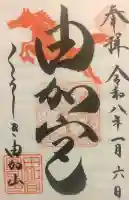 奉拝 令和八年一月六日
由加宮
くらしき 由加山